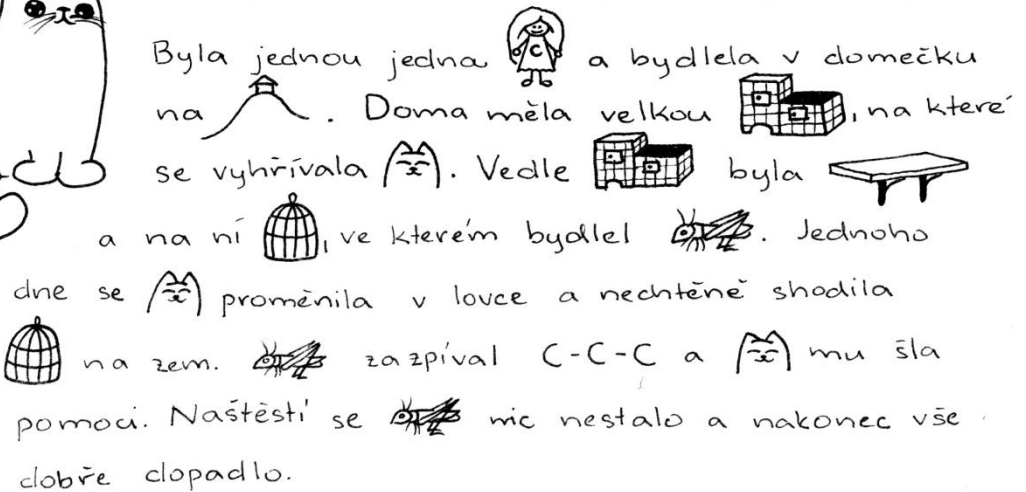 Byla jednou jedna C a bydlela v domečku
na . Doma měla velkou , na které
se vyhřívala . Vedle byla
a na ní , ve kterém bydlel . Jednoho
dne se proměnila v lovce a nechtěně shodila
na zem. zazpíval C-C-C a mu šla
pomoci. Naštěstí se nic nestalo a nakonec vše
dobře dopadlo.